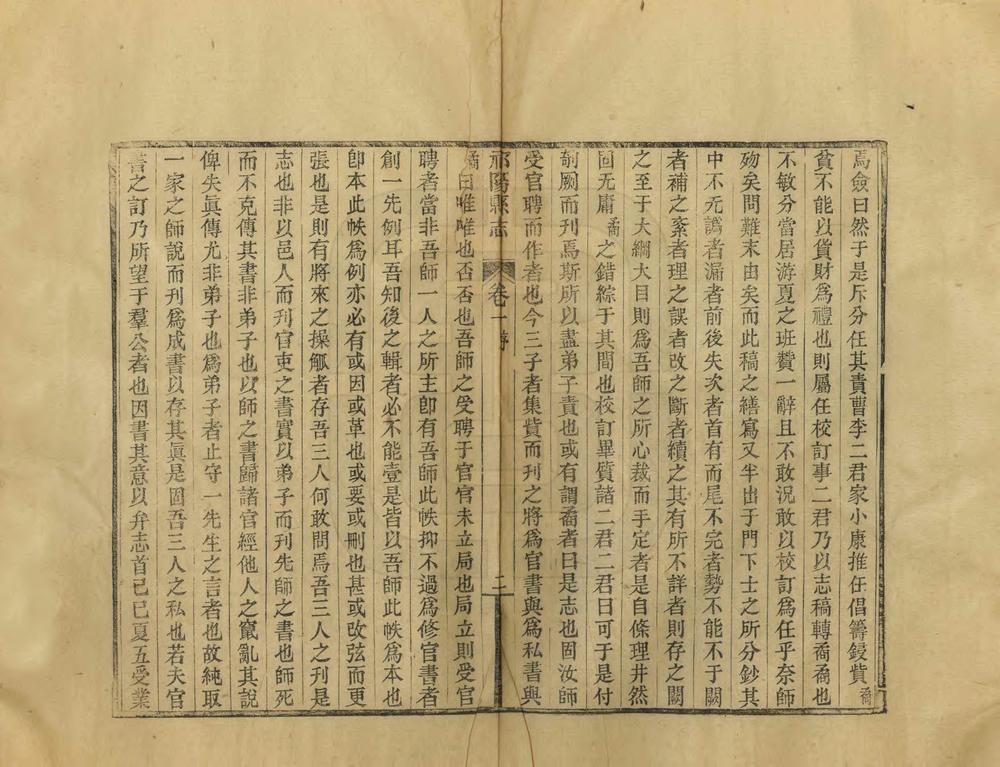 焉僉曰然于是斥分任其責曹李二君家小康推任倡籌鋟貲矞
貧不能以貨財爲禮也則屬任校訂事二君乃以志稿轉矞矞也
不敏分當居游夏之班贊一辭且不敢況敢以校訂爲任乎奈師
歾矣問難末由矣而此稿之繕寫又半出于門下士之所分鈔其
中不无譌者漏者前後失次者首有而尾不完者勢不能不于闕
者補之紊者理之誤者改之斷者續之其有所不詳者則存之闕
之至于大綱大目則爲吾師之所心裁而手定者是自條理井然
固无庸矞之錯綜于其間也校訂畢質諸二君二君曰可于是付
剞劂而刊焉斯所以盡弟子責也或有謂矞者曰是志也固汝師
受官聘而作者也今三子者集貲而刊之將爲官書與爲私書與
祁陽縣志 卷一序 二
矞曰唯唯也否否也吾師之受聘于官官未立局也局立則受官
聘者當非吾師一人之所主卽有吾師此帙抑不過爲修官書者
創一先例耳吾知後之輯者必不能壹是皆以吾師此帙爲本也
卽本此帙爲例亦必有或因或革也或要或刪也甚或改弦而更
張也是則有將來之操觚者存吾三人何敢問焉吾三人之刊是
志也非以邑人而刊官吏之書實以弟子而刊先師之書也師死
而不克傳其書非弟子也以師之書歸諸官經他人之竄亂其說
俾失眞傳尤非弟子也爲弟子者止守一先生之言者也故純取
一家之師說而刊爲成書以存其眞是固吾三人之私也若夫官
書之訂乃所望于羣公者也因書其意以弁志首己巳夏五受業